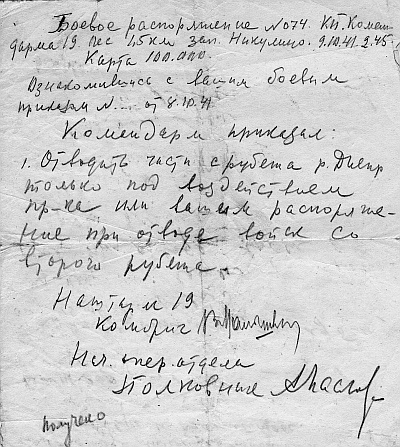 Боевое распоряжение №074. КП. Комен-
дарма 19. Лес 1,5 км зап. Никулино. 9.10.41. 2.45.
Карта 100.000.
Ознакомившись с вашим боевым
приказом №... от 8.10.41
Комендарм приказал:
1. Отводить части с рубежа р. Днепр
только под воздействием
пр-ка или вашем распоряже-
ние при отводе войск со
второго рубежа.
Наштарм 19
Комбриг
Нач. опер. отдела
Полковник
получено